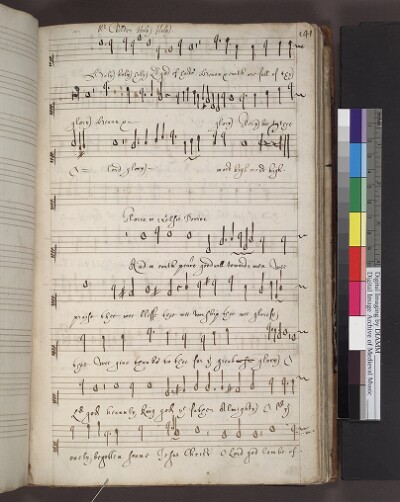 141
Holy holy holy Lord of hosts heaven & earth are full of thy
glory heaven & glory Glory be to thee
O Lord glory most high most high.
Gloria in
And in earth peace good will towards men Wee
praise thee wee bless thee wee worship thee wee glorify
thee Wee give thanks to thee for yͤ great glory O
Ld god heavenly king god yͤ father Almighty O Yͤ
onely begotten sonne Jesus Christ O Lord god lambe of
Digital Imaging by DIAMM
Digital Image Archive of Medieval Music